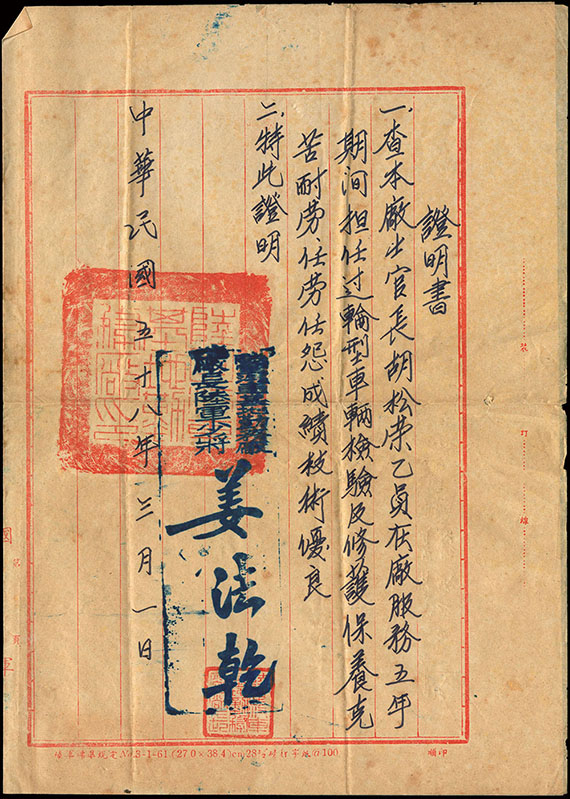 證明書
一、查本廠士官長胡松荣乙員在廠服務五年
期间担任过輪型車輛檢驗及修護保養克
苦耐劳、任劳任怨成績技術優良
二、特此證明
廠長陸軍少將
姜法乾
中華民國五十八年三月一日
裝
訂
線
印順